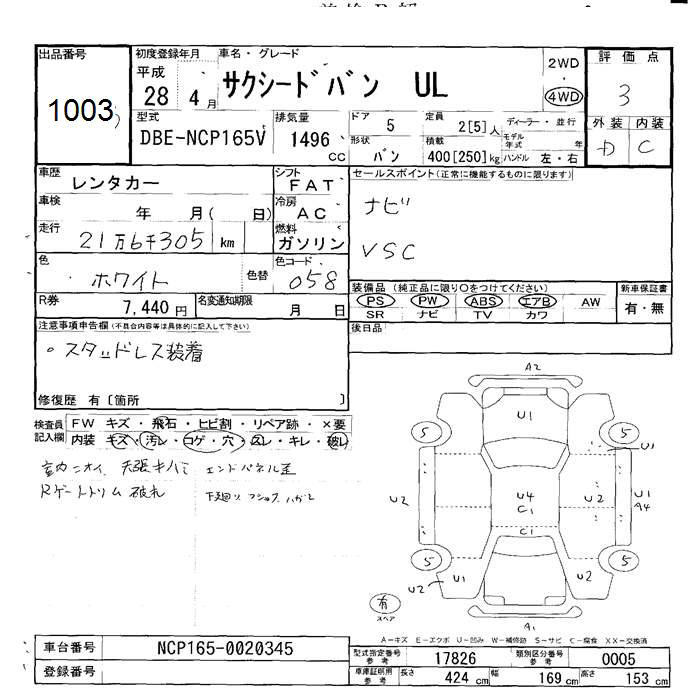 出品番号
1003
初度登録年月
平成
28 4 月
車名・グレード
サクシードバン UL
2WD
・
4WD
評価点
3
外装 内装
D C
型式
DBE-NCP165V
排気量
1496
CC
ドア
5
形状
バン
定員
2[5] 人
積載
400[250] kg
ディーラー・並行
モデル年式 年
ハンドル 左・右
車歴
レンタカー
シフト
FAT
車検
年 月( 日)
冷房
AC
走行
21万6千305 km
燃料
ガソリン
色
ホワイト
色替
色コード
058
R券
7,440 円
名変通知期限
月 日
セールスポイント(正常に機能するものに限ります)
ナビ
VSC
装備品 (純正品に限り○をつけてください)
PS PW ABS エアB AW
SR ナビ TV カワ
新車保証書
有・無
後日品
注意事項申告欄(不具合内容等は具体的に記入して下さい)
。スタッドレス装着
修復歴 有〔箇所 〕
検査員
記入欄
FW キズ・飛石・ヒビ割・リペア跡・×要
内装 キズ・汚レ・コゲ・穴・スレ・キレ・破レ
室内ニオイ、天張キバミ エンドパネル歪
Rゲートトリム 破れ
A2
U1
5
5
U1
U2
U4
C1
U2
U1
A4
C1
5
5
U2
U1
U2
有
スペア
A1
A－キズ E－エクボ U－凹み W－補修跡 S－サビ C－腐食 XX－交換済
車台番号
NCP165-0020345
登録番号
型式指定番号
参考
17826
類別区分番号
参考
0005
車庫証明用
参考
長さ
424 cm
幅
169 cm
高さ
153 cm